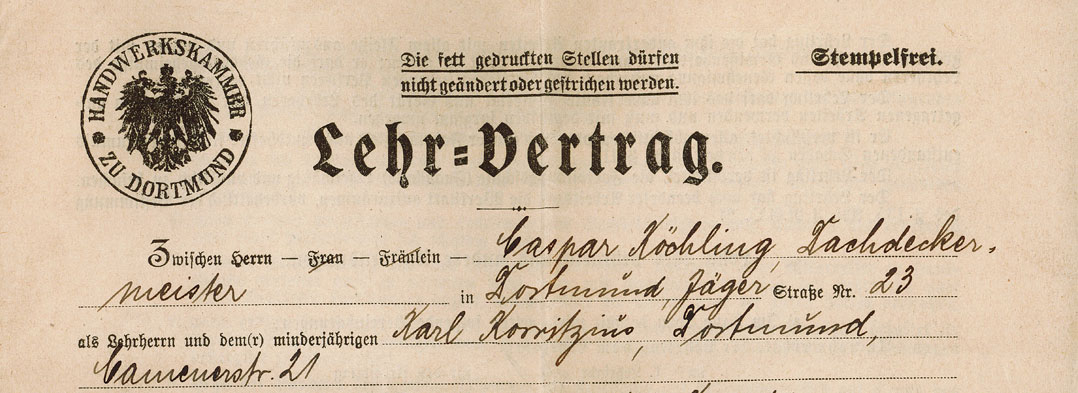 HANDWERKSKAMMER ZU DORTMUND
Die fett gedruckten Stellen dürfen
nicht geändert oder gestrichen werden.
Stempelfrei.
Lehr=Vertrag.
Zwischen Herrn — Frau — Fräulein — Caspar Köchling, Dachdecker-
meister in Dortmund, Jäger Straße Nr. 23
als Lehrherrn und dem(r) minderjährigen Karl Korritzius, Dortmund,
Camenerstr. 21